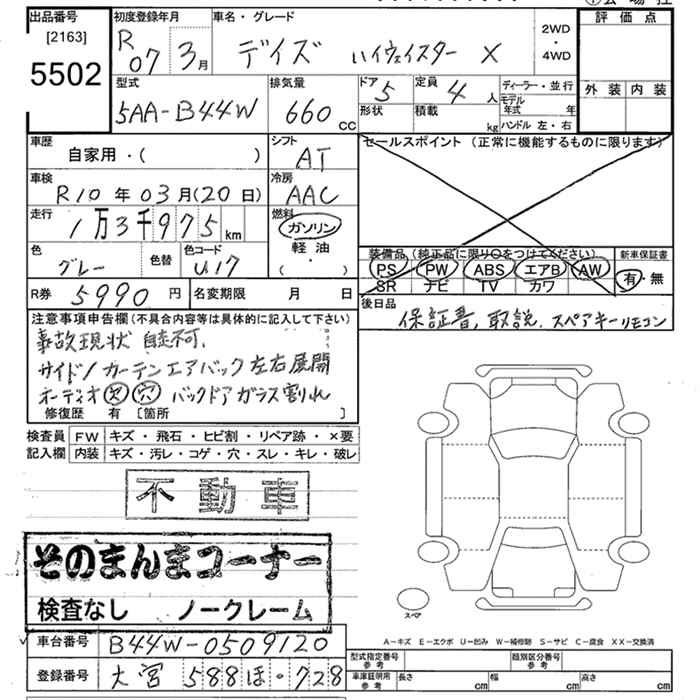 出品番号 初度登録年月 車名・グレード 評価点
[2163]
5502
R07 3月 デイズ ハイウェイスター X 2WD・4WD
型式 排気量 ドア 定員 ディーラー・並行 外装 内装
5AA-B44W 660cc 5 4人 モデル年式 年
形状 積載 kg ハンドル 左・右
車歴 シフト セールスポイント (正常に機能するものに限ります)
自家用・( ) AT
車検 冷房
R10年03月(20日) AAC
走行 燃料
1万3千975km ガソリン
軽油
( ・ )
色 色替 色コード 装備品(純正品に限り○をつけてください) 新車保証書
グレー U17 PS PW ABS エアB AW 有・無
SR ナビ TV カワ
R券 5990円 名変期限 月 日 後日品
保証書, 取説, スペアキーリモコン
注意事項申告欄(不具合内容等は具体的に記入して下さい)
事故現状 自走不可.
サイド/カーテンエアバック左右展開
オーディオ欠穴 バックドアガラス割れ
修復歴 有 [箇所 ]
検査員 FW キズ・飛石・ヒビ割・リペア跡・×要
記入欄 内装 キズ・汚レ・コゲ・穴・スレ・キレ・破レ
不動車
そのまんまコーナー
検査なし ノークレーム
スペア
A-キズ E-エクボ U-凹み W-補修跡 S-サビ C-腐食 XX-交換済
車台番号 B44W-0509120
型式指定番号 参考 類別区分番号 参考
登録番号 大宮 588 ほ・728
車庫証明用 参考 長さ cm 幅 cm 高さ cm